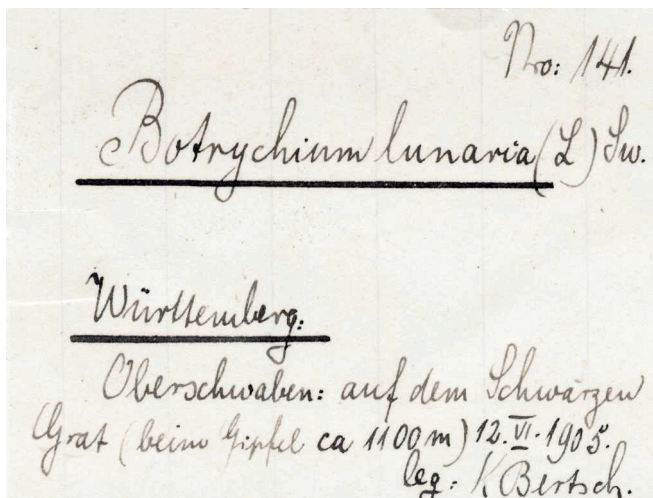 Nro: 141.
Botrychium lunaria (L) Sw.
Württemberg:
Oberschwaben: auf dem Schwarzen
Grat (beim Gipfel ca 1100 m) 12. VI. 1905.
leg: K Bertsch.